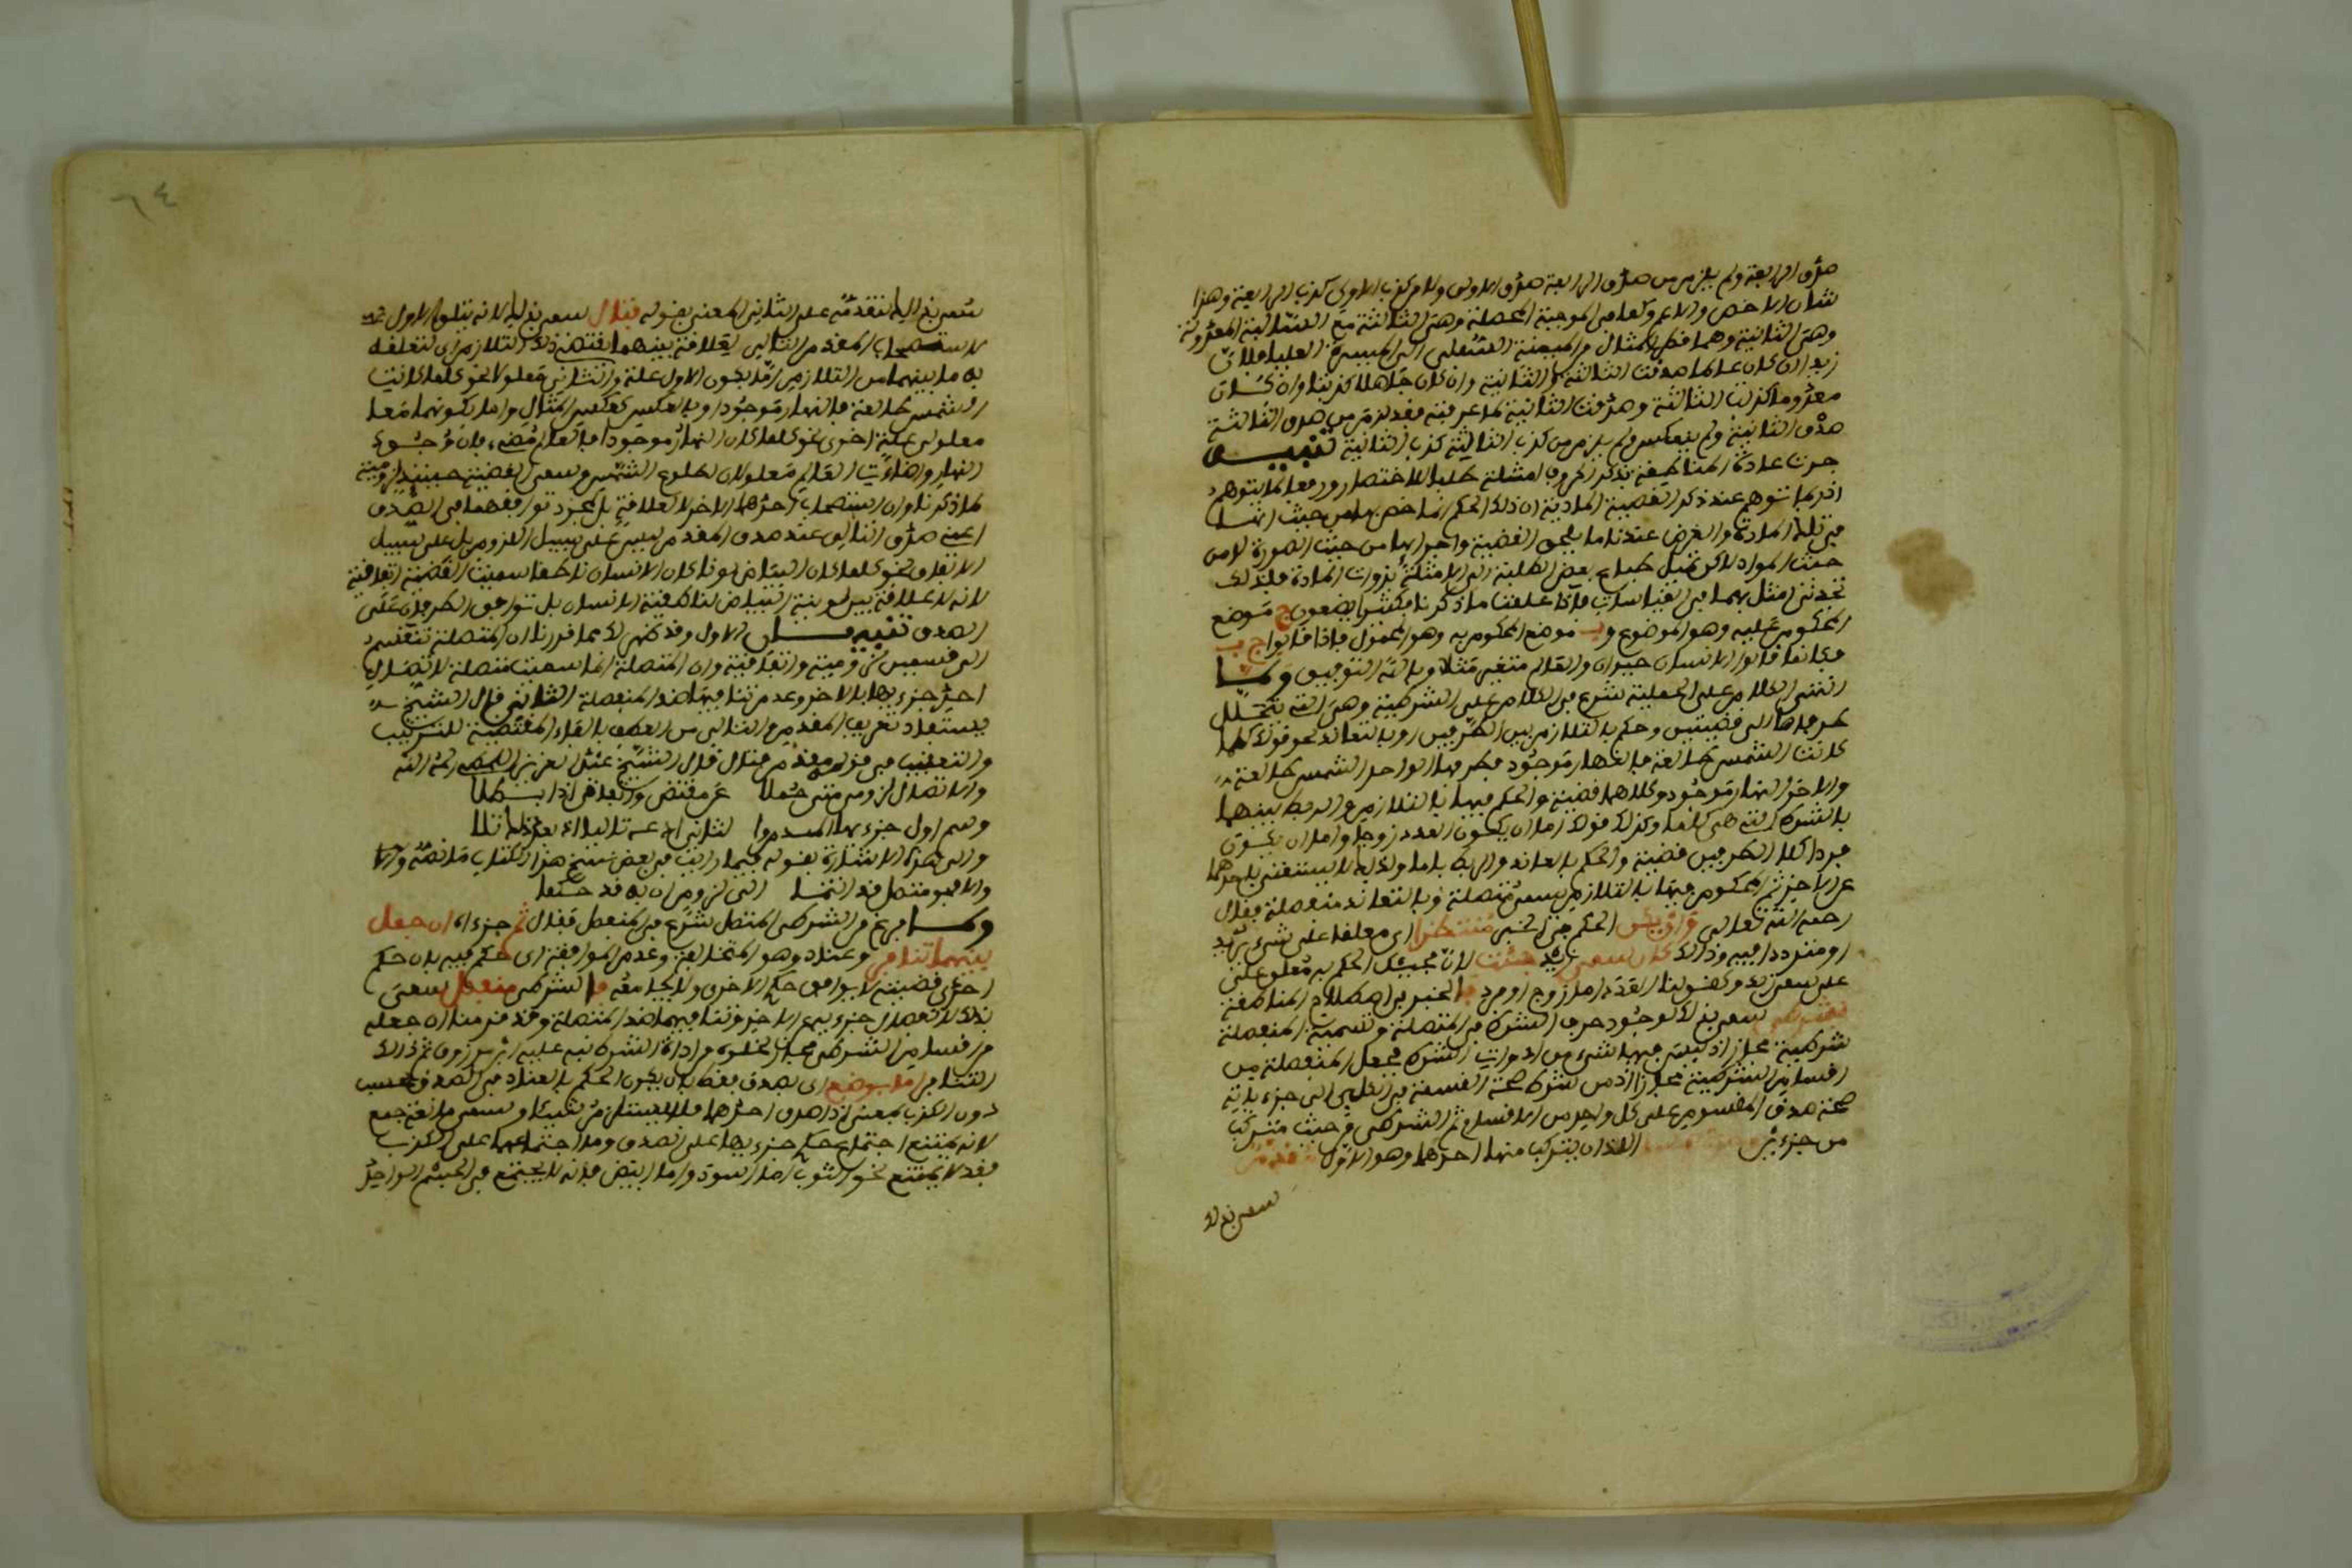 صدق الرابعة ولم يلزم من صدق الرابعة صدق الاولى ولا من كذب الاولى كذب الرابعة وهذا
شان الاخص والاعم وكعامى الموجبة المحصلة وهى الثالثة مع السالبة المعدولة
وهى الثانية وهما
زيد ان كان عالما صدقت الثالثة والثانية وان كان جاهلا كذبتا وان كان
معدوما كذبت الثالثة وصدقت الثانية كما عرفته فقد لزم من صدق الثالثة
صدق الثانية ولم ينعكس ولم يلزم من كذب الثالثة كذب الثانية تنبيه
جرت عادة المناطقة بذكر الحروف امثلة طلبا للاختصار ورفعا لما يتوهم
اذ ربما يتوهم عند ذكر القضية المادية ان ذلك الحكم انما خص بها من حيث انها
فى تلك المادة والغرض عندنا ما يلحق القضية واجزاءها من حيث الصورة لا من
حيث المواد لاكن تميل طباع بعض الطلبة الى الامثلة بذوات المادة فلذلك
تجدنى امثل بهما فى القياسات فاذا علمت ما ذكرنا فكثيرا يضعون ج موضع
المحكوم عليه وهو الموضوع وب موضع المحكوم به وهو المحمول فاذا قالوا ج ب
فكانما قالوا الانسان حيوان والعالم متغير مثلا وبالله التوفيق ولما
انتهى الكلام على الحملية شرع فى الكلام على الشرطية وهى التى تتحلل
طرفاها الى قضيتين وحكم بالتلازم بين الطرفين او بالتعاند نحو قولك كلما
كانت الشمس طالعة فالنهار موجود فطرفها الواحد الشمس طالعة
والاخر النهار موجود وكلاهما قضية والحكم فيها بالتلازم والربط بينهما
بالشرط التى هى كلما وكذلك قولك اما ان يكون العدد زوجا واما ان يكون
فردا كلا الطرفين قضية والحكم بالعناد والربط باما ولذلك لا يستغنى باحدهما
عن الاخر ثم المحكوم فيها بالتلازم يسمى متصلة وبالتعاند منفصلة فقال
رحمه الله تعالى وان يكن الحكم فى الخبر منتظرا اى معلقا على شىء يريد
او متردد افيه وذلك كان سعى زيد جئت لان مجيئك الحكم به معلق على
على سعى زيد وكقولنا العدد اما زوج او فرد فالخبر فى اصطلاح المناطقة
شرطى سمى بذلك لوجود حرف الشرط فى المتصلة وتسمية المنفصلة
شرطية مجاز اذ ليس فيها شىء من ادوات الشرط فجعل المنفصلة من
اقسام الشرطية مجازا اذ من شرط صحة القسمة
صحة صدق المقسوم على كل واحد من الاقسام ثم الشرطى من حيث تركب
من جزءين اللذان يتركب منهما احدهما وهو الاول مقدم
سمى بذلك
٦٤
سمى بذلك لتقدمه على الثانى المعنى بقوله فتال سمى بذلك لانه يتلو الاول
لاستصحاب المقدم التالى لعلاقة بينهما تقتضى ذلك التلازم اى لتعلق
به ما بينهما من التلازم اما بكون الاول علة والثانى معلولا نحو كلما كانت
الشمس طالعة فالنهار موجودا وبالعكس كعكس المثال واما بكونهما معا
معلولى علة اخرى نحو كلما كان النهار موجودا فالعالم مضىء فان وجود
النهار واضاءة العالم معلولان لطلوع الشمس وسمى القضية حينئذ لزومية
كما ذكرنا وان استصحاب احدهما الاخر لا لعلاقة بل لمجرد توافقهما فى الصدق
اعنى صدق التالى عند صدق المقدم ليس على سبيل اللزوم بل على سبيل
الاتفاق نحو كلما كان البياض لونا كان الانسان ناطقا سميت القضية اتفاقية
لانه لا علاقة بين لونية البياض لناطقية الانسان بل توافق الطرفان على
الصدق تنبيهان الاول وقد ظهر لك مما قررنا ان المتصلة تنقسم
الى قسمين لزومية واتفاقية وان المتصلة انما سميت متصلة لاتصال
احد جزءيها بالاخر وعدم تنافيهما ضد المنفصلة الثانى قال الشيخ
يستفاد تعريف المقدم والتالى من العطف بالفاء المقتضية للترتيب
والتعقيب فى قوله مقدم فتال قال الشيخ رحمه الله
والاتصال لزومى متى جعلا عن مقتض واتفاقى اذا بطلا
وسم اول جزءيها
والى هذه الاشارة بقوله فيما رايت فى بعض نسخ هذا الكتاب ما نصه والا
والا فهو متصل قد انتما الى لزوم ان به قد حكما
ولما فرغ من الشرطى المتصل شرع فى المنفصل فقال ثم جزءاه ان جعل
بينهما تنافى وعناد وهو المخالفة وعدم الموافقة اى حكم فيه بان حكم
احدى قضيتيه لا يوافق حكم الاخرى ولا يجامعه فالشرطى منفصل سمى
بذلك لانفصال جزءيه عن الاخر وتنافيهما ضد المتصلة وقد قدمنا ان جعله
من اقسام الشرطى مجاز لخلوه من اداة الشرط نبه عليه ابن مرزوق ثم ذلك
التنافى اما بوضع اى بصدق فقط بان يكون الحكم بالعناد فى الصدق فحسب
دون الكذب بمعنى اذا صدق احدهما وسمى مانعة جمع
لانه يمتنع اجتماع حكم جزءيها على الصدق وما اجتماعهما على الكذب
فقد لا يمتنع نحو الثوب اما اسود واما ابيض فانه لا يجتمع فى الجسم الواحد